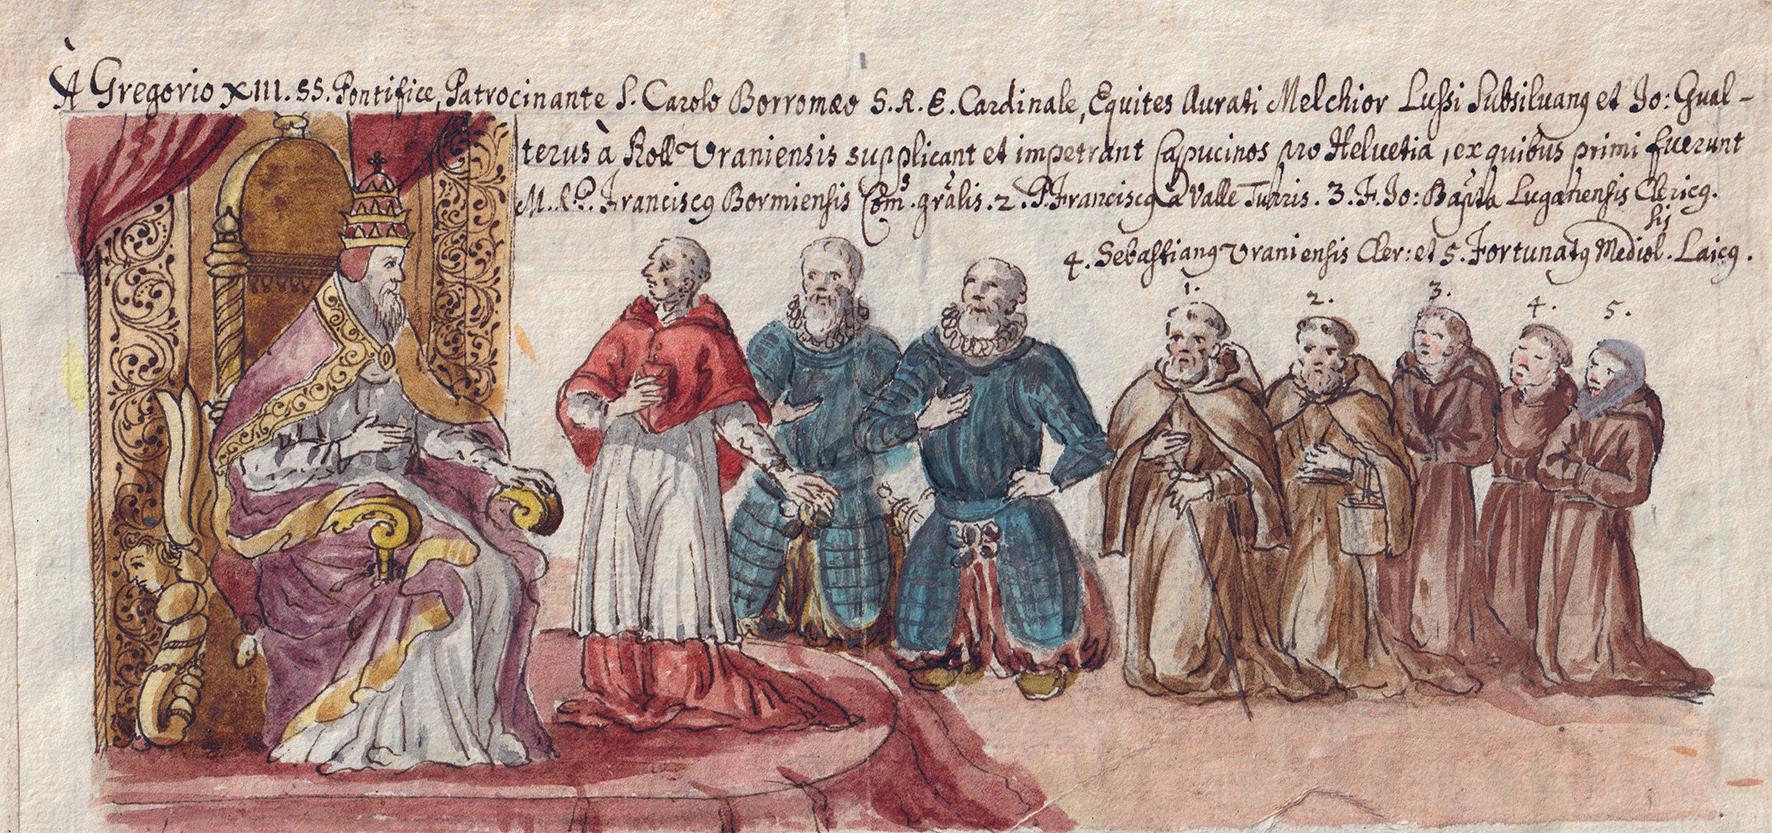 À Gregorio XIII. SS. Pontifice, Patrocinante S. Carolo Borromæo S. R. E. Cardinale, Equites Aurati Melchior Lussi Subsiluanꝯ et Jo: Gual-
terus à Roll Vraniensis supplicant et impetrant Capucinos pro Helvetia, ex quibus primi fuerunt
M. R. P. Franciscꝯ Bormiensis Com.s grãlis. 2. P. Franciscꝯ à Valle Turris. 3. F. Jo: Bapͭta Luganensis Clericꝯ.
hij
4. Sebastianꝯ Vraniensis Cler: et 5. Fortunatꝯ Mediol. Laicꝯ.
1. 2. 3. 4. 5.